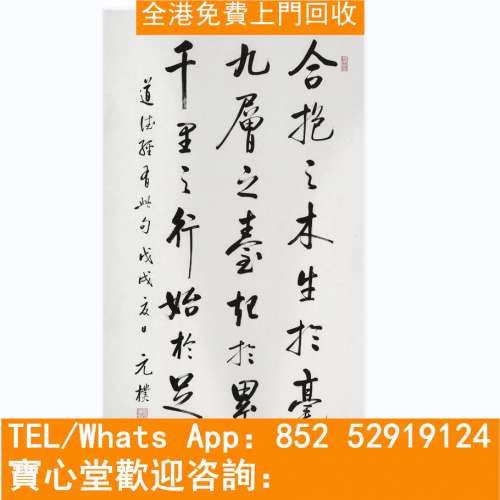 全港免費上門回收
合抱之木生於毫
九層之臺起於累
千里之行始於足
道德經有此句戊戌夏日元樸
TEL/Whats App：852 52919124
寶心堂歡迎咨詢：